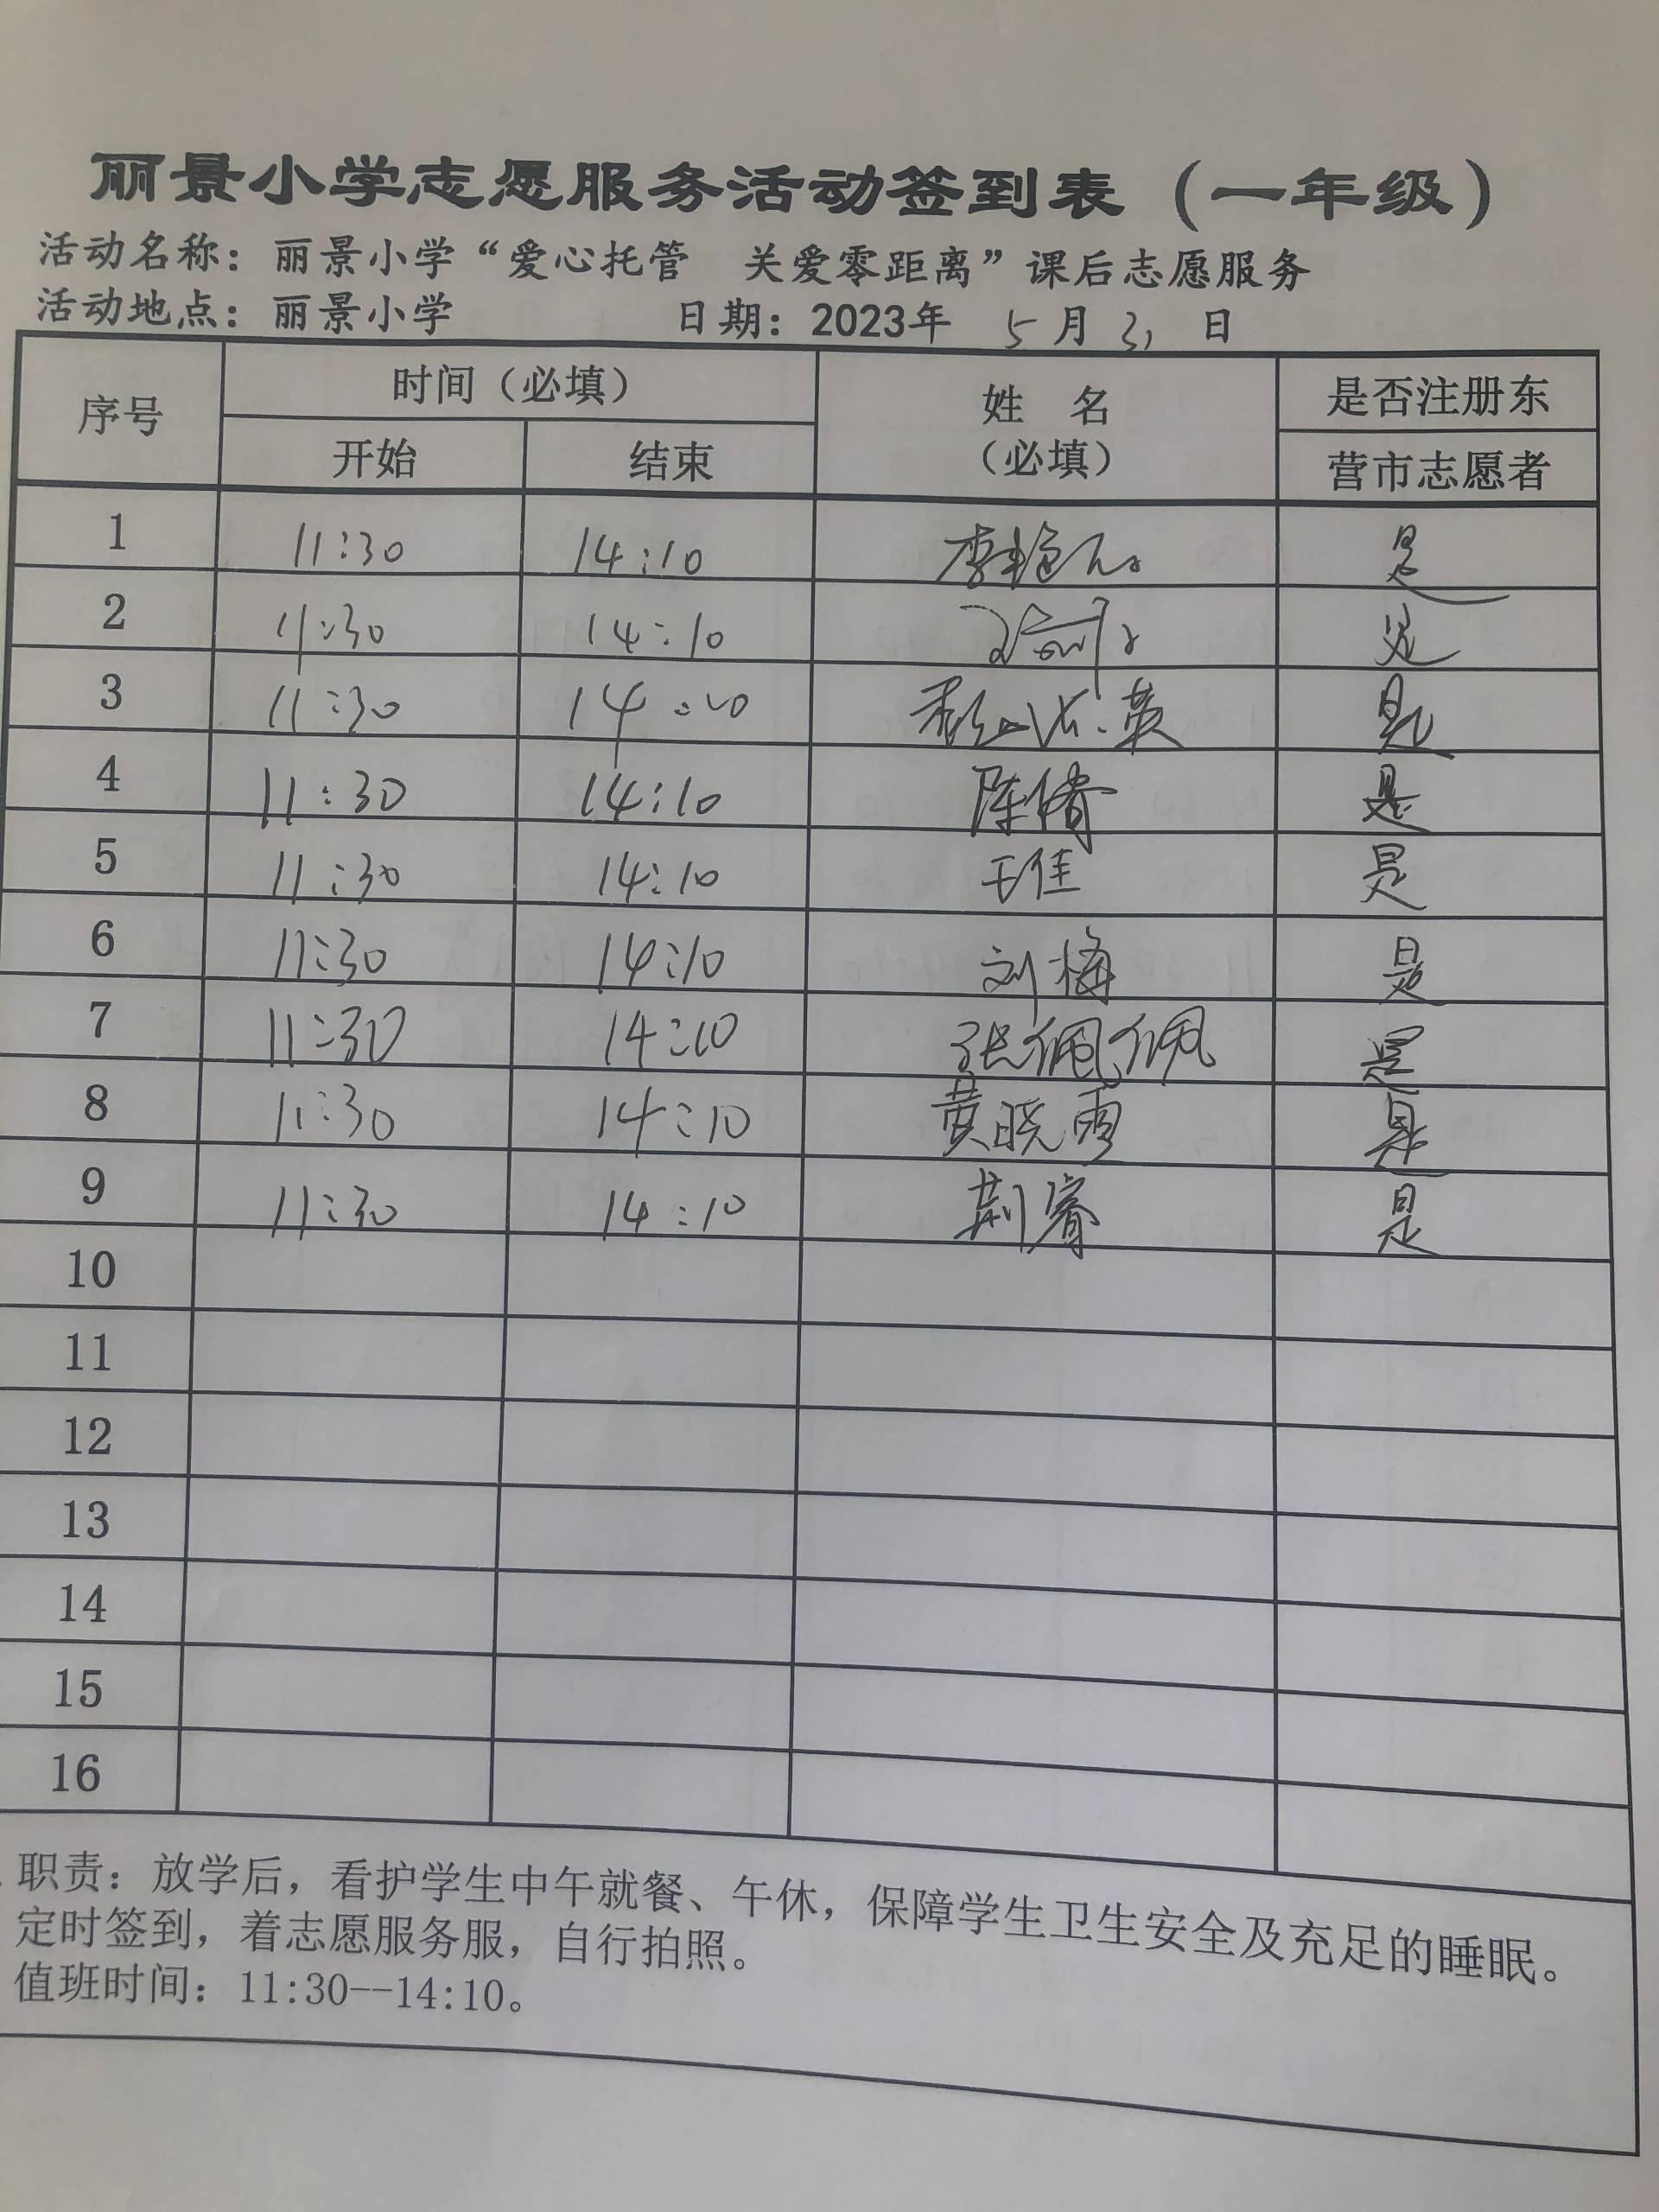 丽景小学志愿服务活动签到表（一年级）
活动名称：丽景小学“爱心托管 关爱零距离”课后志愿服务
活动地点：丽景小学 日期：2023年 5月31日
序号 时间（必填） 姓 名（必填） 是否注册东营市志愿者
开始 结束
1 11:30 14:10 李艳 是
2 11:30 14:10 是
3 11:30 14:10 英 是
4 11:30 14:10 陈倩 是
5 11:30 14:10 王佳 是
6 11:30 14:10 刘梅 是
7 11:30 14:10 张佩佩 是
8 11:30 14:10 黄晓雪 是
9 11:30 14:10 荆睿 是
10
11
12
13
14
15
16
职责：放学后，看护学生中午就餐、午休，保障学生卫生安全及充足的睡眠。
定时签到，着志愿服务服，自行拍照。
值班时间：11:30--14:10。